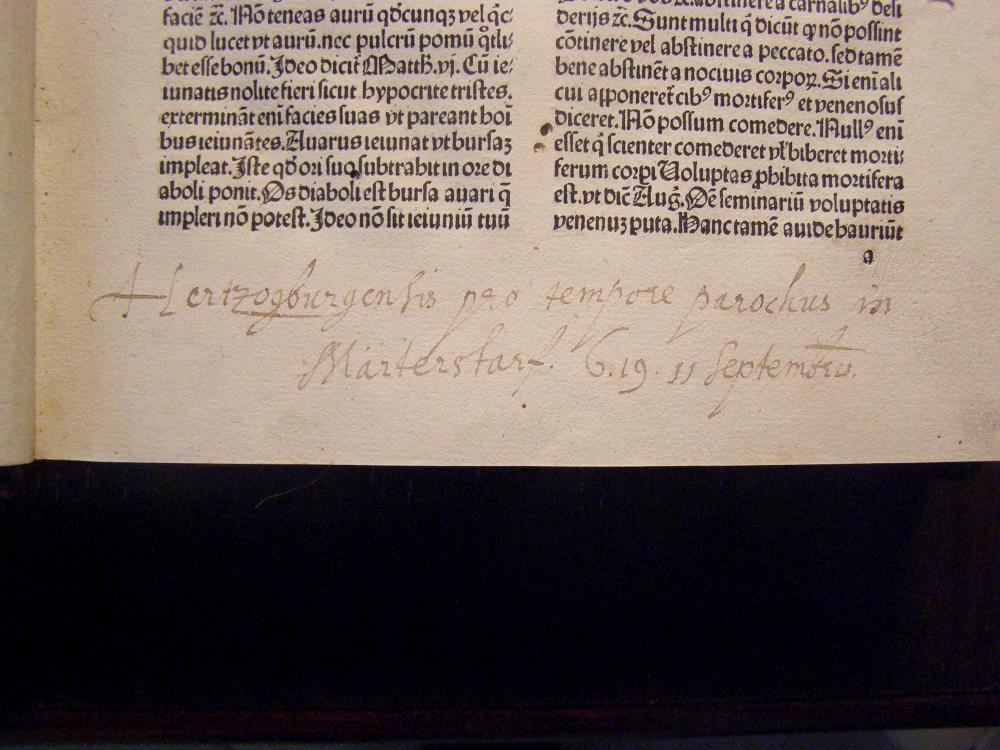 faciē ⁊c̄. Nō teneas aurū qd̄cunqꝫ vel q̄c⸗
quid lucet vt aurū. nec pulcrū pomū qͦtli⸗
bet esse bonū. Ideo dicit̄ Matth̄. vj. Cū ie⸗
iunatis nolite fieri sicut hypocrite tristes.
extermināt eni᷒ facies suas vt pareant hoī
bus ieiunātes. Auarus ieiunat vt bursaꝫ
impleat. Iste qd̄ ori suo subtrahit in ore di
aboli ponit. Os diaboli est bursa auari q̄
impleri nō potest. Ideo nō sit ieiuniū tuū
derijs ⁊c̄. Sunt multi q̇ dicūt ꝙ nō possint
cōtinere vel abstinere a peccato. sed tamē
bene abstinēt a nociuis corpoꝝ. Si eni᷒ ali
cui apponeret̄ cibꝰ mortiferꝰ et venenosus
diceret. Nō possum comedere. Nullꝰ eni᷒
esset q̇ scienter comederet vl̓ biberet morti⸗
ferum corpi Voluptas ꝓhibita mortifera
est. vt dic̄ Aug̊. Oē seminariū voluptatis
venenuꝫ puta. Hanc tamē auide hauriūt
a
Hertzogburgensis pro tempore parochus in
Märterstarf. 6.19. 11 Septembris.